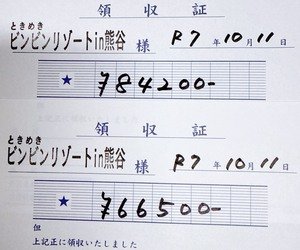 領収証
ときめき
ビンビンリゾートin熊谷 様 R7年10月11日
★ ¥84200-
領収証
ときめき
ビンビンリゾートin熊谷 様 R7年10月11日
★ ¥66500-
但
上記正に領収いたしました